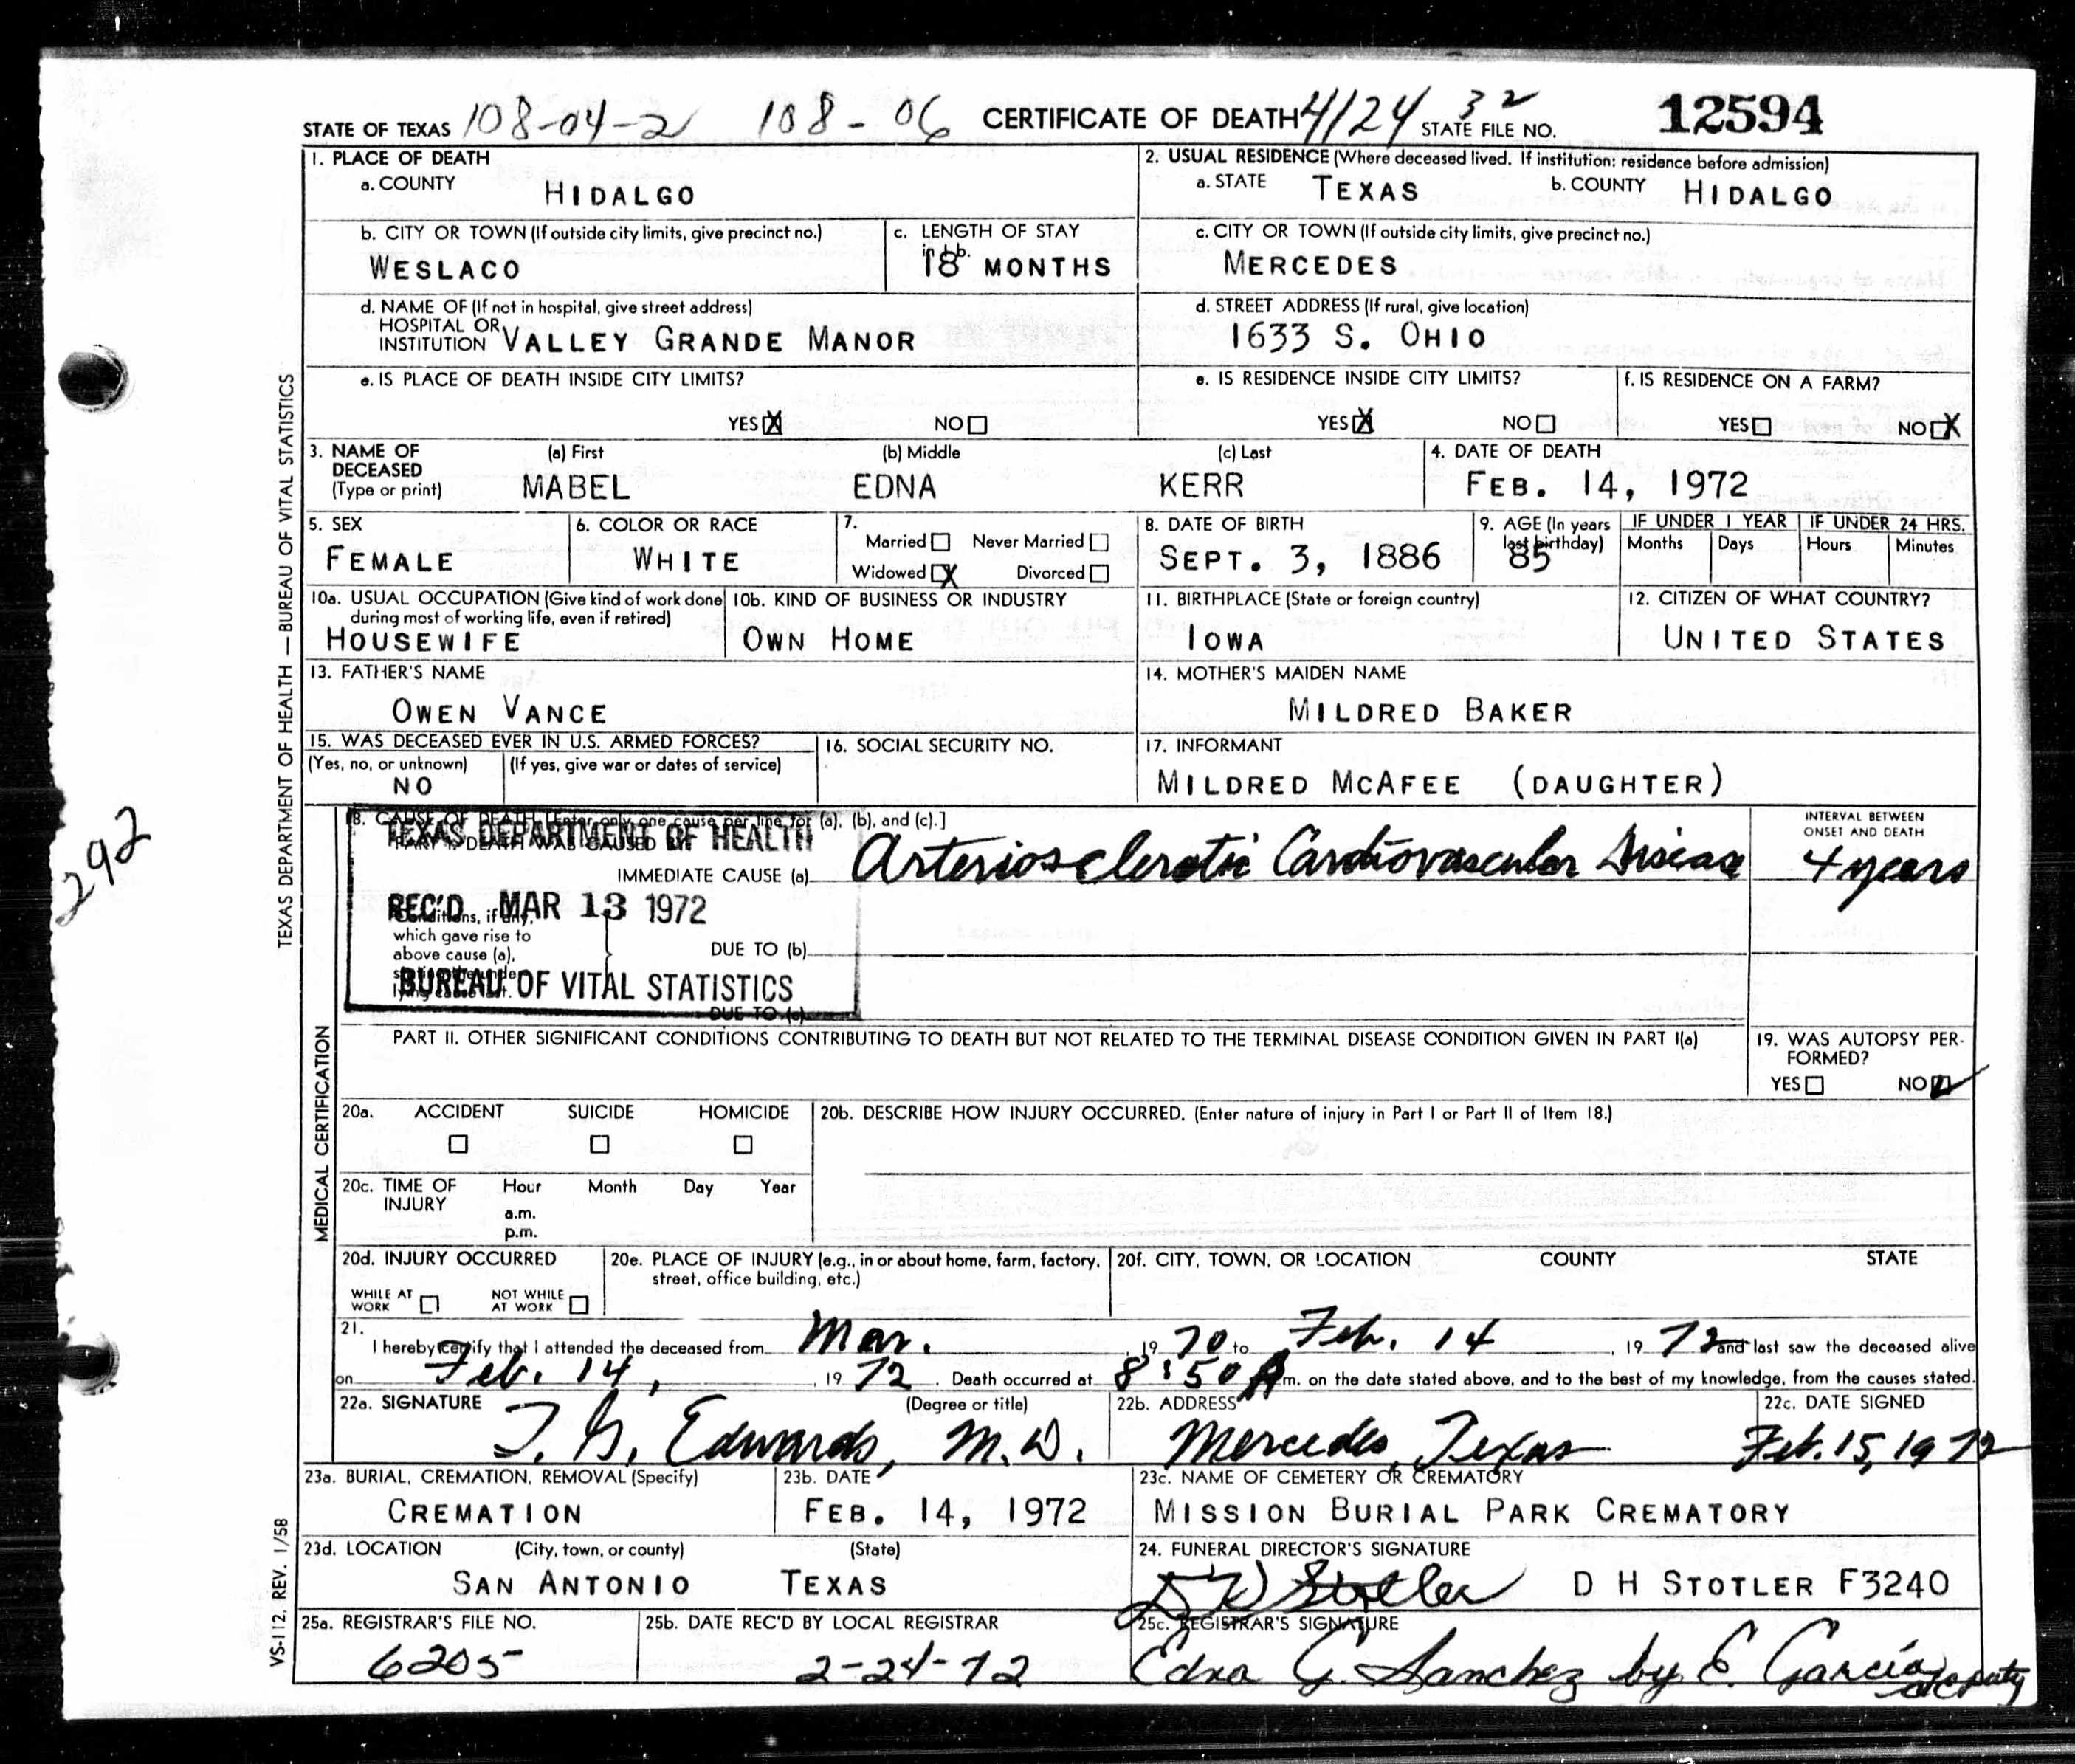 STATE OF TEXAS 108-04-2 108-06 CERTIFICATE OF DEATH 4124 32 STATE FILE NO. 12594
1. PLACE OF DEATH
a. COUNTY HIDALGO
2. USUAL RESIDENCE (Where deceased lived. If institution: residence before admission)
a. STATE TEXAS b. COUNTY HIDALGO
b. CITY OR TOWN (If outside city limits, give precinct no.)
WESLACO
c. LENGTH OF STAY
in 1b.
18 MONTHS
c. CITY OR TOWN (If outside city limits, give precinct no.)
MERCEDES
d. NAME OF (If not in hospital, give street address)
HOSPITAL OR
INSTITUTION VALLEY GRANDE MANOR
d. STREET ADDRESS (If rural, give location)
1633 S. OHIO
e. IS PLACE OF DEATH INSIDE CITY LIMITS?
YES X NO
e. IS RESIDENCE INSIDE CITY LIMITS?
YES X NO
f. IS RESIDENCE ON A FARM?
YES NO X
3. NAME OF DECEASED (Type or print)
(a) First (b) Middle (c) Last
MABEL EDNA KERR
4. DATE OF DEATH
FEB. 14, 1972
5. SEX
FEMALE
6. COLOR OR RACE
WHITE
7.
Married Never Married
Widowed X Divorced
8. DATE OF BIRTH
SEPT. 3, 1886
9. AGE (In years
last birthday)
85
IF UNDER 1 YEAR IF UNDER 24 HRS.
Months Days Hours Minutes
10a. USUAL OCCUPATION (Give kind of work done
during most of working life, even if retired)
HOUSEWIFE
10b. KIND OF BUSINESS OR INDUSTRY
OWN HOME
11. BIRTHPLACE (State or foreign country)
IOWA
12. CITIZEN OF WHAT COUNTRY?
UNITED STATES
13. FATHER'S NAME
OWEN VANCE
14. MOTHER'S MAIDEN NAME
MILDRED BAKER
15. WAS DECEASED EVER IN U.S. ARMED FORCES?
(Yes, no, or unknown) (If yes, give war or dates of service)
NO
16. SOCIAL SECURITY NO.
17. INFORMANT
MILDRED MCAFEE (DAUGHTER)
18. CAUSE OF DEATH [Enter only one cause per line for (a), (b), and (c).]
PART I. DEATH WAS CAUSED BY
TEXAS DEPARTMENT OF HEALTH
REC'D MAR 13 1972
BUREAU OF VITAL STATISTICS
IMMEDIATE CAUSE (a) Arteriosclerotic Cardiovascular Disease
INTERVAL BETWEEN
ONSET AND DEATH
4 years
Conditions, if any,
which gave rise to
above cause (a),
stating the under-
lying cause last.
DUE TO (b)
DUE TO (c)
PART II. OTHER SIGNIFICANT CONDITIONS CONTRIBUTING TO DEATH BUT NOT RELATED TO THE TERMINAL DISEASE CONDITION GIVEN IN PART I(a)
19. WAS AUTOPSY PER-
FORMED?
YES NO
20a. ACCIDENT SUICIDE HOMICIDE
20b. DESCRIBE HOW INJURY OCCURRED. (Enter nature of injury in Part I or Part II of Item 18.)
20c. TIME OF INJURY Hour Month Day Year
a.m.
p.m.
20d. INJURY OCCURRED
WHILE AT WORK NOT WHILE AT WORK
20e. PLACE OF INJURY (e.g., in or about home, farm, factory,
street, office building, etc.)
20f. CITY, TOWN, OR LOCATION COUNTY STATE
21.
I hereby certify that I attended the deceased from Mar. , 19 70 to Feb. 14 , 19 72 and last saw the deceased alive
on Feb. 14, , 19 72 . Death occurred at 8:50 A m. on the date stated above, and to the best of my knowledge, from the causes stated.
22a. SIGNATURE (Degree or title)
T. G. Edwards, M.D.
22b. ADDRESS
Mercedes, Texas
22c. DATE SIGNED
Feb. 15, 1972
23a. BURIAL, CREMATION, REMOVAL (Specify)
CREMATION
23b. DATE
FEB. 14, 1972
23c. NAME OF CEMETERY OR CREMATORY
MISSION BURIAL PARK CREMATORY
23d. LOCATION (City, town, or county) (State)
SAN ANTONIO TEXAS
24. FUNERAL DIRECTOR'S SIGNATURE
D H Stotler D H STOTLER F3240
25a. REGISTRAR'S FILE NO.
6205
25b. DATE REC'D BY LOCAL REGISTRAR
2-24-72
25c. REGISTRAR'S SIGNATURE
Edna G. Sanchez by E. Garcia deputy
TEXAS DEPARTMENT OF HEALTH — BUREAU OF VITAL STATISTICS
MEDICAL CERTIFICATION
VS-112, REV. 1/58
292